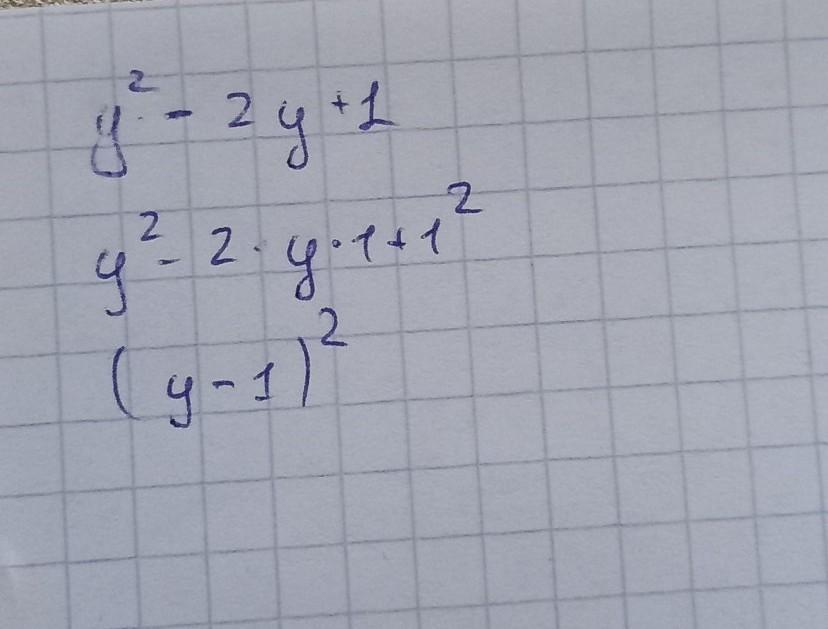 y² - 2y + 1
y² - 2 · y · 1 + 1²
(y - 1)²